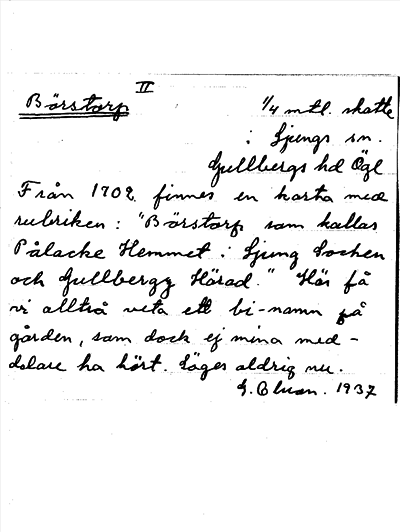 II
Börstorp 1/4 mtl. skatte
i Ljungs sn.
Gullbergs hd Ögl
Från 1702 finnes en karta med
rubriken: "Börstorp som kallas
Pålacke Hemmet i Ljung Sochen
och Gullbergz Härad." Här få
vi alltså veta ett bi-namn på
gården, som dock ej mina med-
delare ha hört. Säges aldrig nu.
1937